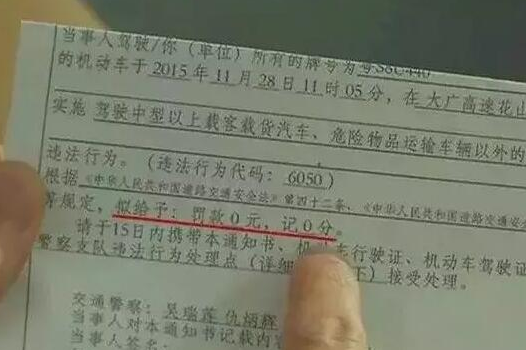 当事人驾驶/你（单位）所有的牌号为粤S6C440
的机动车于2015年11月28日11时05分，在大广高速花山
实施驾驶中型以上载客载货汽车、危险物品运输车辆以外的
违法行为。（违法行为代码：6050）
根据《中华人民共和国道路交通安全法》第四十二条、《中华人民共和国道路交通安
等规定，拟给予：罚款0元，记0分。
请于15日内携带本通知书、机 车行驶证、机动车驾驶证
警察支队违法行为处理点（详细 下）接受处理。
交通警察：吴瑞莲 仇炳辉
当事人对本通知书记载内容
当事人签名：